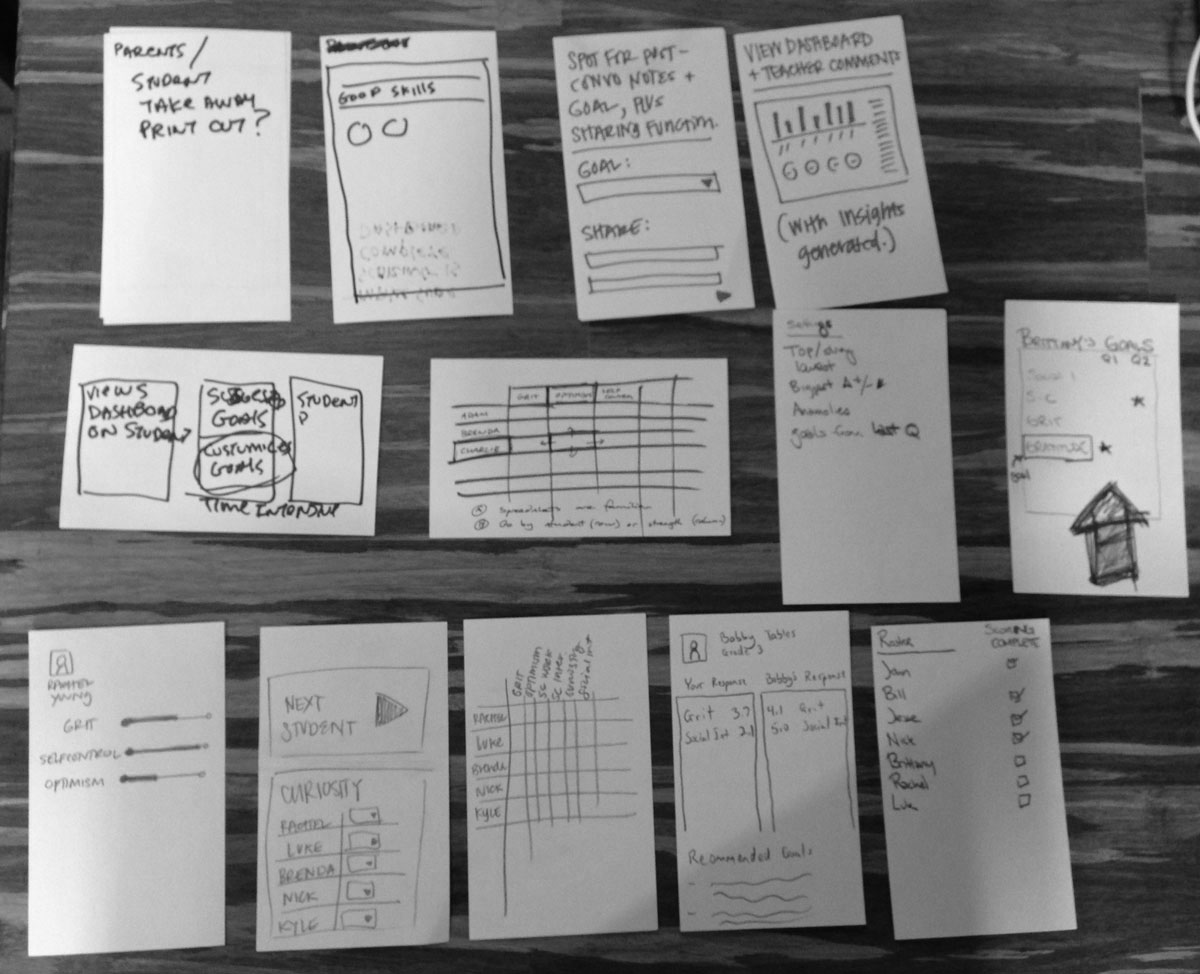 PARENTS/
STUDENT
TAKE AWAY
PRINT OUT?
GOOD SKILLS
SPOT FOR POST-
CONVO NOTES +
GOAL, PLUS
SHARING FUNCTION.
GOAL:
SHARE:
VIEW DASHBOARD
+ TEACHER COMMENTS
(with insights
generated.)
VIEWS
DASHBOARD
ON STUDENT
GOALS
CUSTOMIZES
GOALS
STUDENT
P
TIME INTENSIVE
GRIT OPTIMISM SELF
CONTROL
ADAM
BRENDA
CHARLIE
Ⓐ Spreadsheets are familiar
Ⓑ Go by student (row) or strength (column)
Settings
Top/
lowest
Biggest Δ +/-
Anomalies
goals from last Q
BRITTANY'S GOALS
Q1 Q2
S-C
GRIT
GRATITUDE
goal
RACHEL
YOUNG
GRIT
SELFCONTROL
OPTIMISM
NEXT
STUDENT
CURIOSITY
RACHEL
LUKE
BRENDA
NICK
KYLE
GRIT
OPTIMISM
SC WORK
SC INTER
CURIOSITY
RACHEL
LUKE
Brenda
NICK
KYLE
Bobby Tables
Grade 3
Your Response
Bobby's Response
Grit 3.7
4.1 Grit
Social Int 2.1
5.0 Social Int
Recommended Goals
Roster
SCORING
COMPLETE
Jan
Bill
Jesse
Nick
Brittany
Rachel
Luke